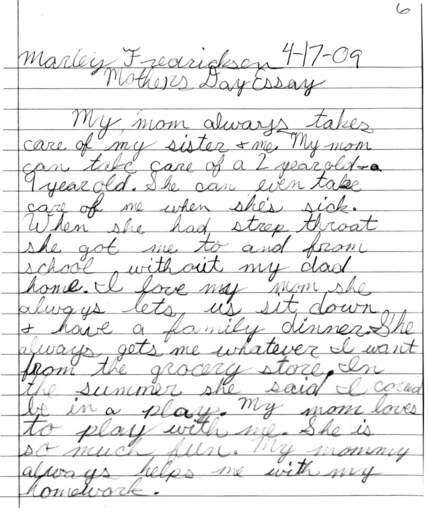 6
Marley Fredricksen 4-17-09
Mothers Day Essay
My mom always takes
care of my sister + me. My mom
can take care of a 2 year old + a
9 year old. She can even take
care of me when she's sick.
When she had strep throat
she got me to and from
school without my dad
home. I love my mom she
always lets us sit down
+ have a family dinner. She
always gets me whatever I want
from the grocery store. In
the summer she said I could
be in a play. My mom loves
to play with me. She is
so much fun. My mommy
always helps me with my
homework.